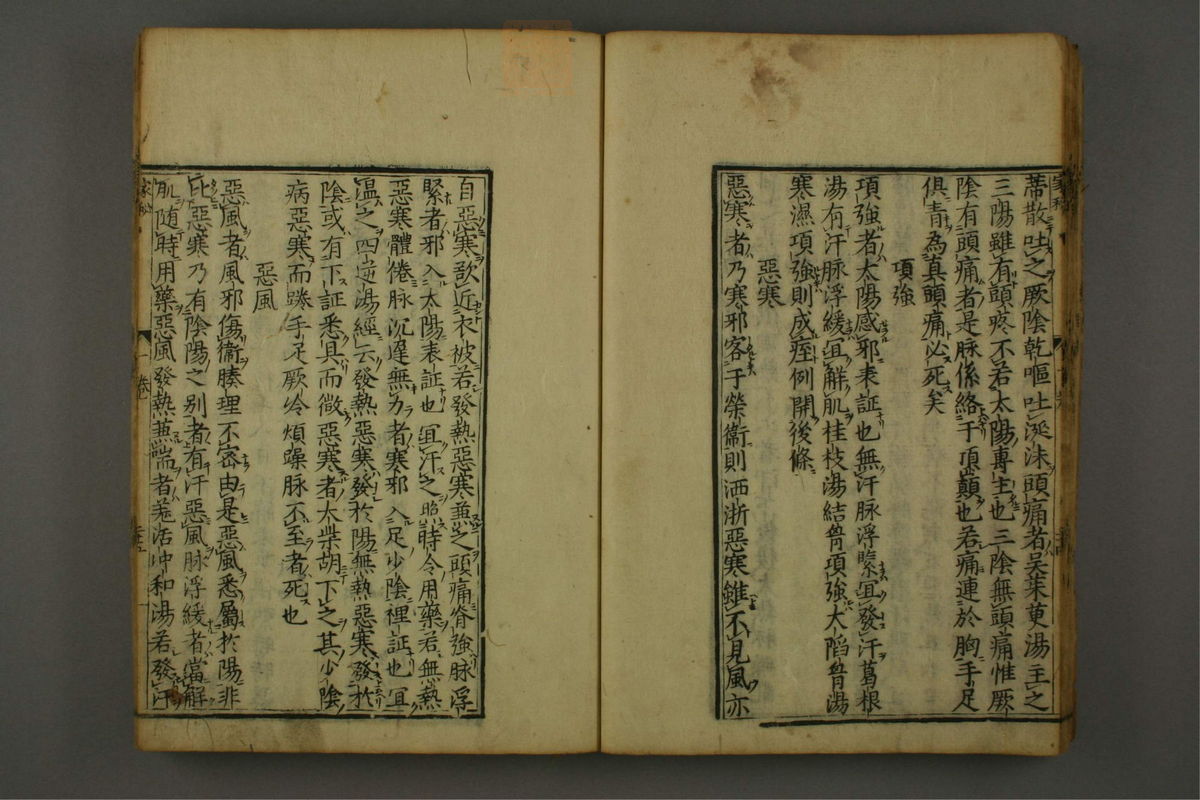 蒂散吐之厥陰乾嘔吐涎沫頭痛者吴茱萸湯主之
三陽雖有頭疼不若太陽專主也三陰無頭痛惟厥
陰有頭痛者是脉係絡于頂顛也若痛連於胸手足
俱青為真頭痛必死矣
項強
項強者太陽感邪表証也無汗脉浮緊冝發汗葛根
湯有汗脉浮緩冝解肌桂枝湯結胷項強大陷胷湯
寒濕項強則成痓例開後條
惡寒
惡寒者乃寒邪客于榮衞則洒淅惡寒雖不見風亦
自惡寒欲近衣被若發熱惡寒兼之頭痛脊強脉浮
緊者邪入太陽表証也冝汗之照時令用藥若無熱
惡寒體倦脉沉遲無力者寒邪入足少陰裡証也冝
温之四逆湯經云發熱惡寒發於陽無熱惡寒發於
陰或有下証悉具而微惡寒者大柴胡下之其少陰
病惡寒而踡手足厥冷煩躁脉不至者死也
惡風
惡風者風邪傷衞腠理不密由是惡風悉屬於陽非
比惡寒乃有陰陽之别者有汗惡風脉浮緩者當解
肌随時用藥惡風發熱兼喘者羗活冲和湯若發汗
一卷